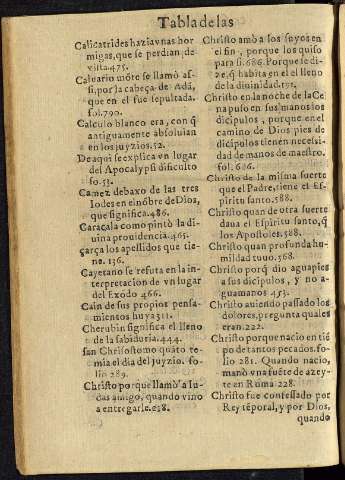 Tabla de las
Calicatrides hazia vnas hor
migas, que se perdian de
vista. 475.
Caluario mõte se llamò as-
si, por la cabeça de Adã,
que en el fue sepultada.
fol. 790.
Calculo blanco era, con q̃
antiguamente absoluian
en los juyzios. 52.
De aqui se explica vn lugar
del Apocalypsi dificulto
so. 53.
Camez debaxo de las tres
Iodes en el nõbre de Dios,
que significa. 486.
Caracala como pintò la di-
uina prouidencia. 465.
çarça los apellidos que tie-
ne. 136.
Cayetano se refuta en la in-
terpretacion de vn lugar
del Exodo 466.
Cain de sus propios pensa-
mientos huya 311.
Cherubin significa el lleno
de la sabiduria. 444.
san Chrisostomo quãto te-
mia el dia del juyzio. fo-
lio 289.
Christo porque llamò a Iu-
das amigo, quando vino
a entregarle. 638.
Christo amò a los suyos en
el fin, porque los quiso
para si. 686. Porque se di-
ze, q̃ habita en el el lleno
de la diuinidad. 191.
Christo en la noche de la Ce
na puso en sus manos los
dicipulos, porque en el
camino de Dios pies de
dicipulos tienen necessi-
dad de manos de maestro.
fol. 686.
Christo de la misma suerte
que el Padre, tiene el Es-
piritu santo. 588.
Christo quan de otra suerte
daua el Espiritu santo, q̃
los Apostoles. 588.
Christo quan profunda hu-
mildad tuuo. 568.
Christo porq̃ dio aguapies
a sus dicipulos, y no a-
guamanos 453.
Christo auiendo passado los
dolores, pregunta quales
eran. 222.
Christo porque nacio en tiẽ
po de tantos pecados. fo-
lio 281. Quando nacio,
manò vna fuẽte de azey-
te en Roma 228.
Christo fue confessado por
Rey tẽporal, y por Dios,
quando